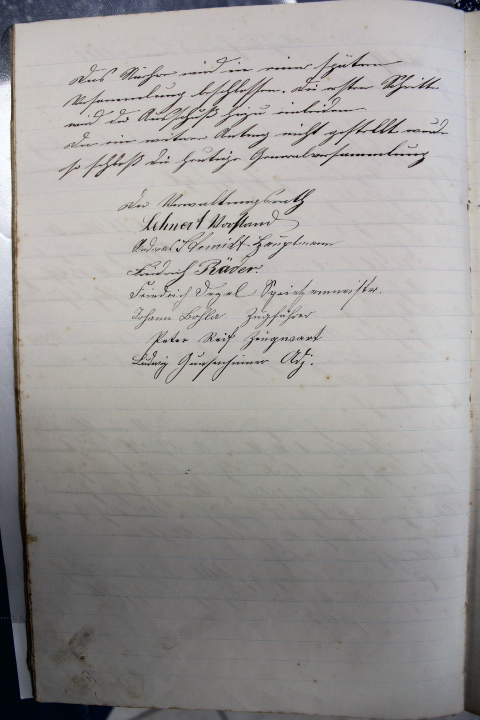 Das Nähere wird in einer spätern
Versammlung beschlossen. Die ersten Schritte
wird der Ausschuß hiezu einleiten.
Da ein weiterer Antrag nicht gestellt wurde
so schloß die heutige Generalversammlung
Der Verwaltungsrath
Lehnert Vorstand
Andreas Schmidt Hauptmann
Friedrich Räder.
Friedrich Spritzenmeistr.
Johann Bohla Zugführer
Peter Reif Zeugwart
Ludwig Adj.